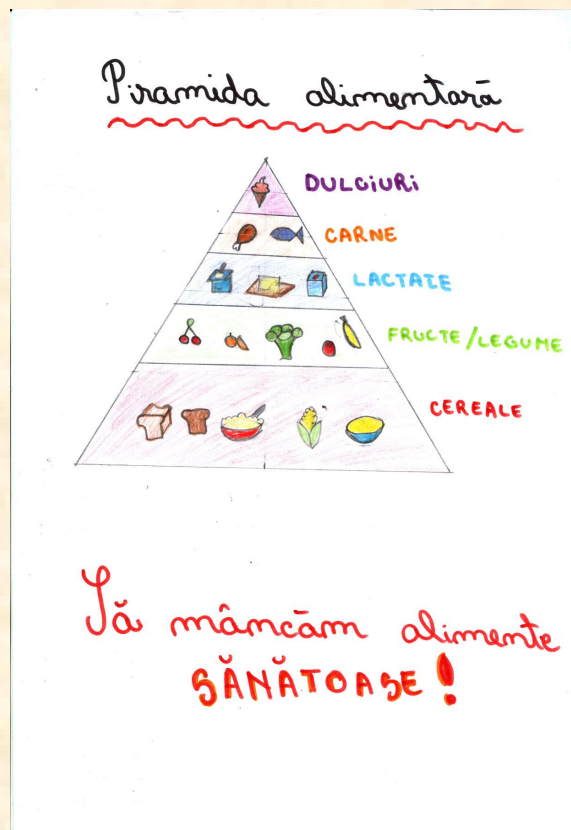 Piramida alimentară
DULCIURI
CARNE
LACTATE
FRUCTE/LEGUME
CEREALE
Să mâncăm alimente
SĂNĂTOASE!